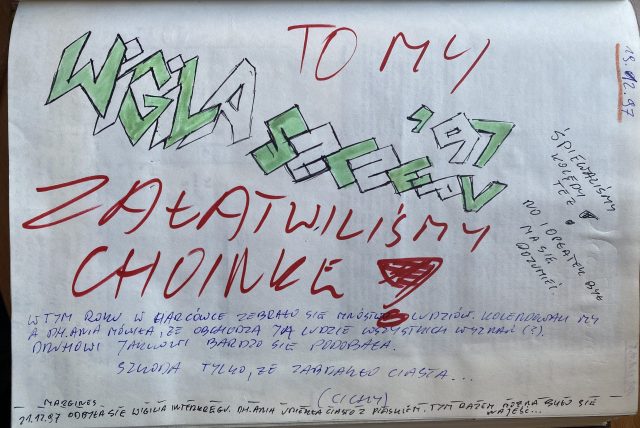 TO MY
19.12.97
WIGILIA
SZCZEPU '97
ZAŁATWILIŚMY
CHOINKĘ!
ŚPIEWALIŚMY
KOLĘDY
TEŻ!
NO I OPŁATEK BYŁ
MA SIĘ
ROZUMIEĆ
W TYM ROKU W HARCÓWCE ZEBRAŁO SIĘ MNÓSTWO LUDZIÓW. KOLENDOWALI MY
A DH. ANIA MÓWIŁA, ŻE OBCHODZĄ JĄ LUDZIE WSZYSTKICH WYZNAŃ (?).
DRUHOWI BARDZO SIĘ PODOBAŁA.
SZKODA TYLKO, ŻE ZABRAKŁO CIASTA...
(CICHY)
MARGINES
21.12.97 ODBYŁA SIĘ WIGILIA DH. ANIA UPIEKŁA CIASTO Z PIASKIEM. TYM RAZEM MOŻNA BYŁO SIĘ
NAJEŚĆ...